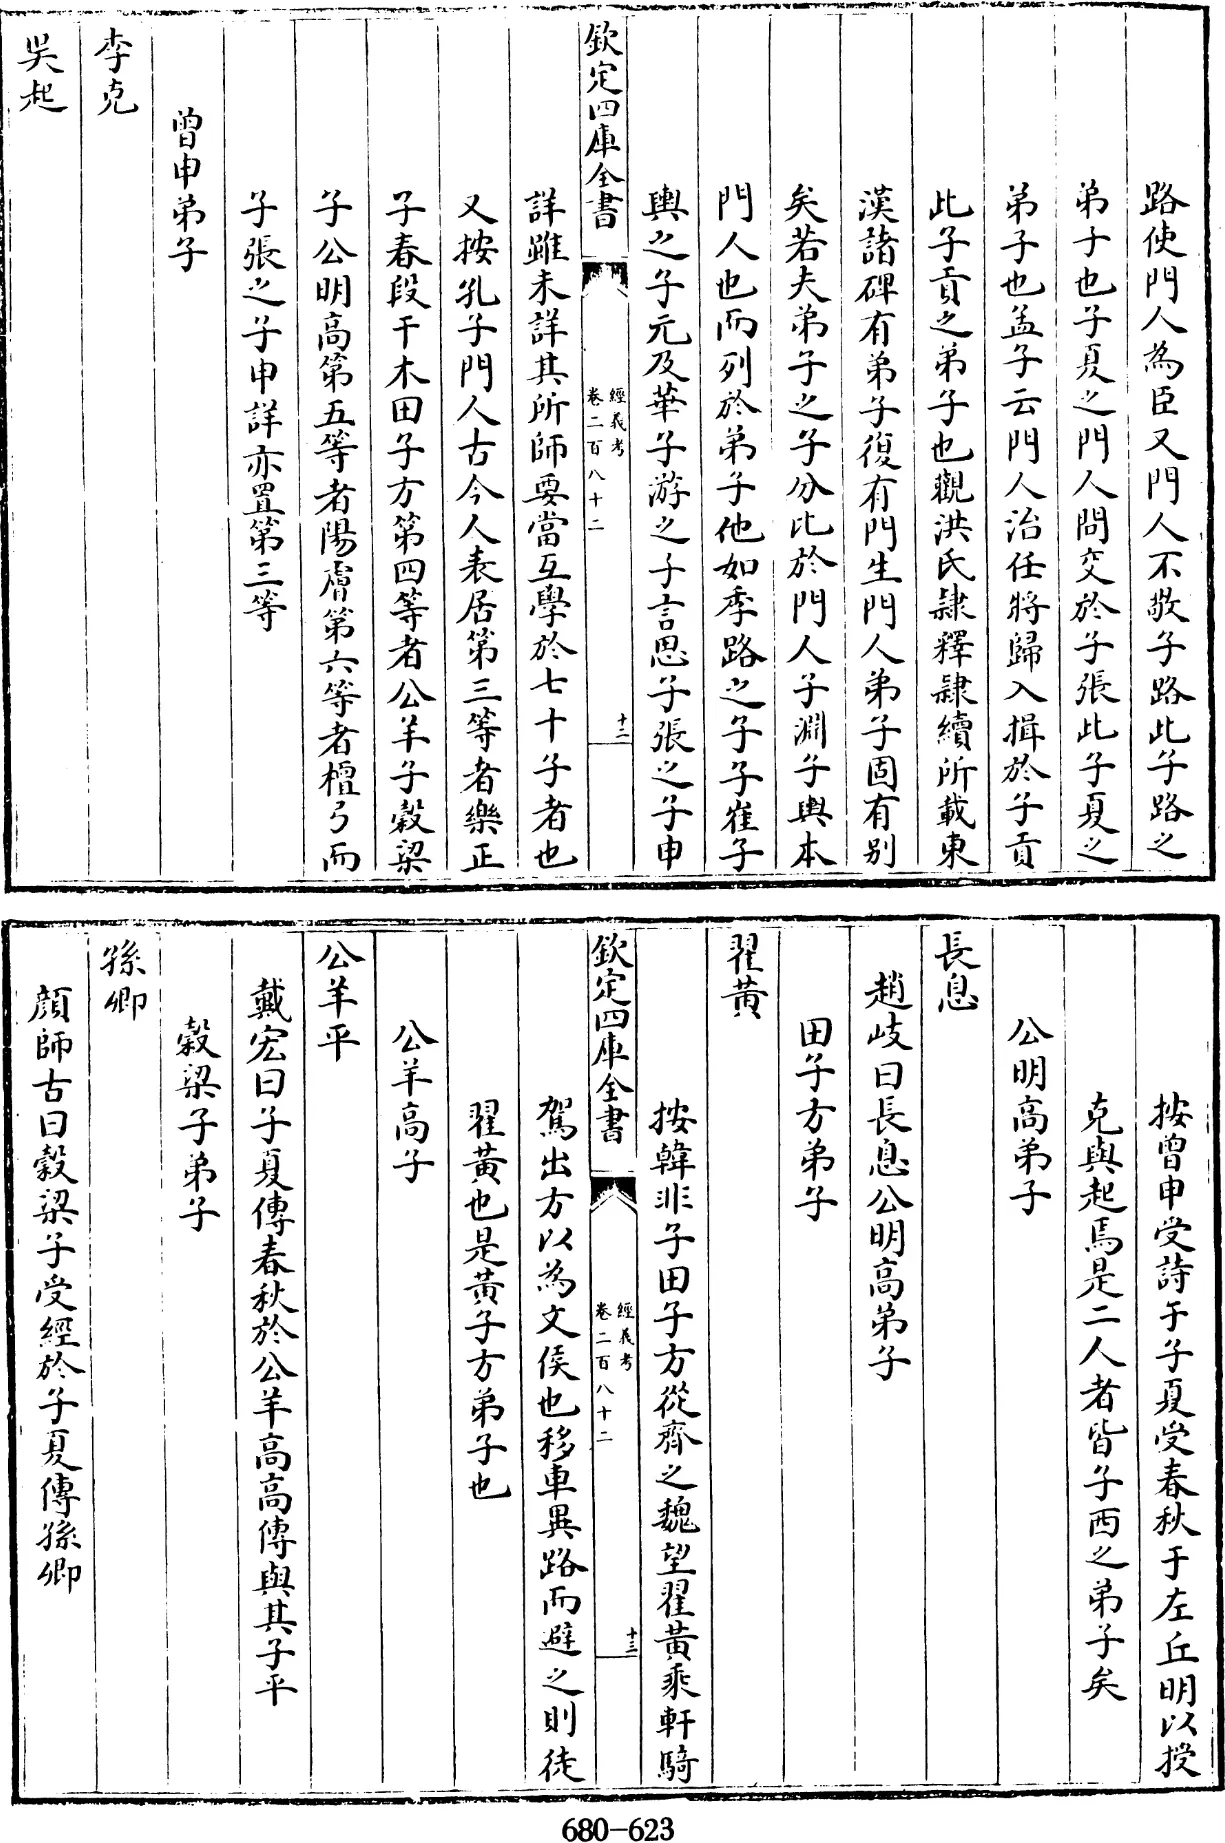 路使門人為臣又門人不敬子路此子路之
弟子也子夏之門人問交於子張此子夏之
弟子也孟子云門人治任將歸入揖於子貢
此子貢之弟子也觀洪氏隷釋隷續所載東
漢諸碑有弟子復有門生門人弟子固有别
矣若夫弟子之子分比於門人子淵子輿本
門人也而列於弟子他如季路之子子崔子
輿之子元及華子游之子言思子張之子申
欽定四庫全書
經義考
卷二百八十二
十二
詳雖未詳其所師要當互學於七十子者也
又按孔子門人古今人表居第三等者樂正
子春段干木田子方第四等者公羊子穀梁
子公明高第五等者陽膚第六等者檀弓而
子張之子申詳亦置第三等
曾申弟子
李克
吳起
按曾申受詩于子夏受春秋于左丘明以授
克與起焉是二人者皆子西之弟子矣
公明高弟子
長息
趙岐曰長息公明高弟子
田子方弟子
翟黄
按韓非子田子方從齊之魏望翟黄乘軒騎
欽定四庫全書
經義考
卷二百八十二
十三
駕出方以為文侯也移車異路而避之則徒
翟黄也是黄子方弟子也
公羊高子
公羊平
戴宏曰子夏傳春秋於公羊高高傳與其子平
穀梁子弟子
孫卿
顔師古曰穀梁子受經於子夏傳孫卿
680-623